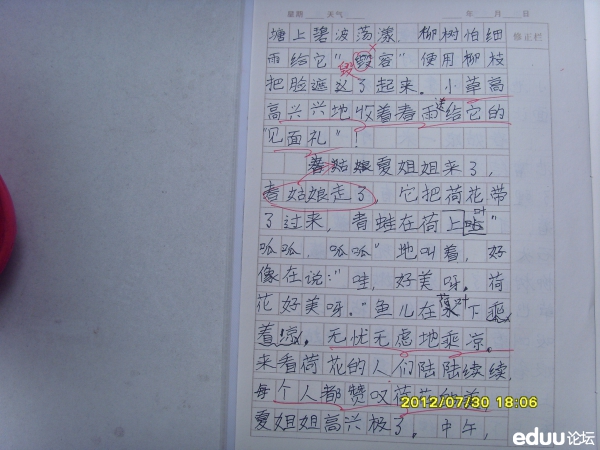 星期 天气 年 月 日
塘上碧波荡漾,柳树怕细 修正栏
雨给它“毁容”使用柳枝
毁
把脸遮了起来。小草高
高兴兴地收着春雨送给它的
“见面礼”!
夏姐姐来了,
春姑娘走了,它把荷花带
了过来,青蛙在荷叶上“
呱呱,呱呱”地叫着,好
像在说:“哇,好美呀。荷
花好美呀。”鱼儿在荷叶下乘
着凉。无忧无虑地乘凉。
来看荷花的人们陆陆续续,
每个人都赞叹荷花
夏姐姐高兴极了。中午,
2012/07/30 18:06
eduu论坛